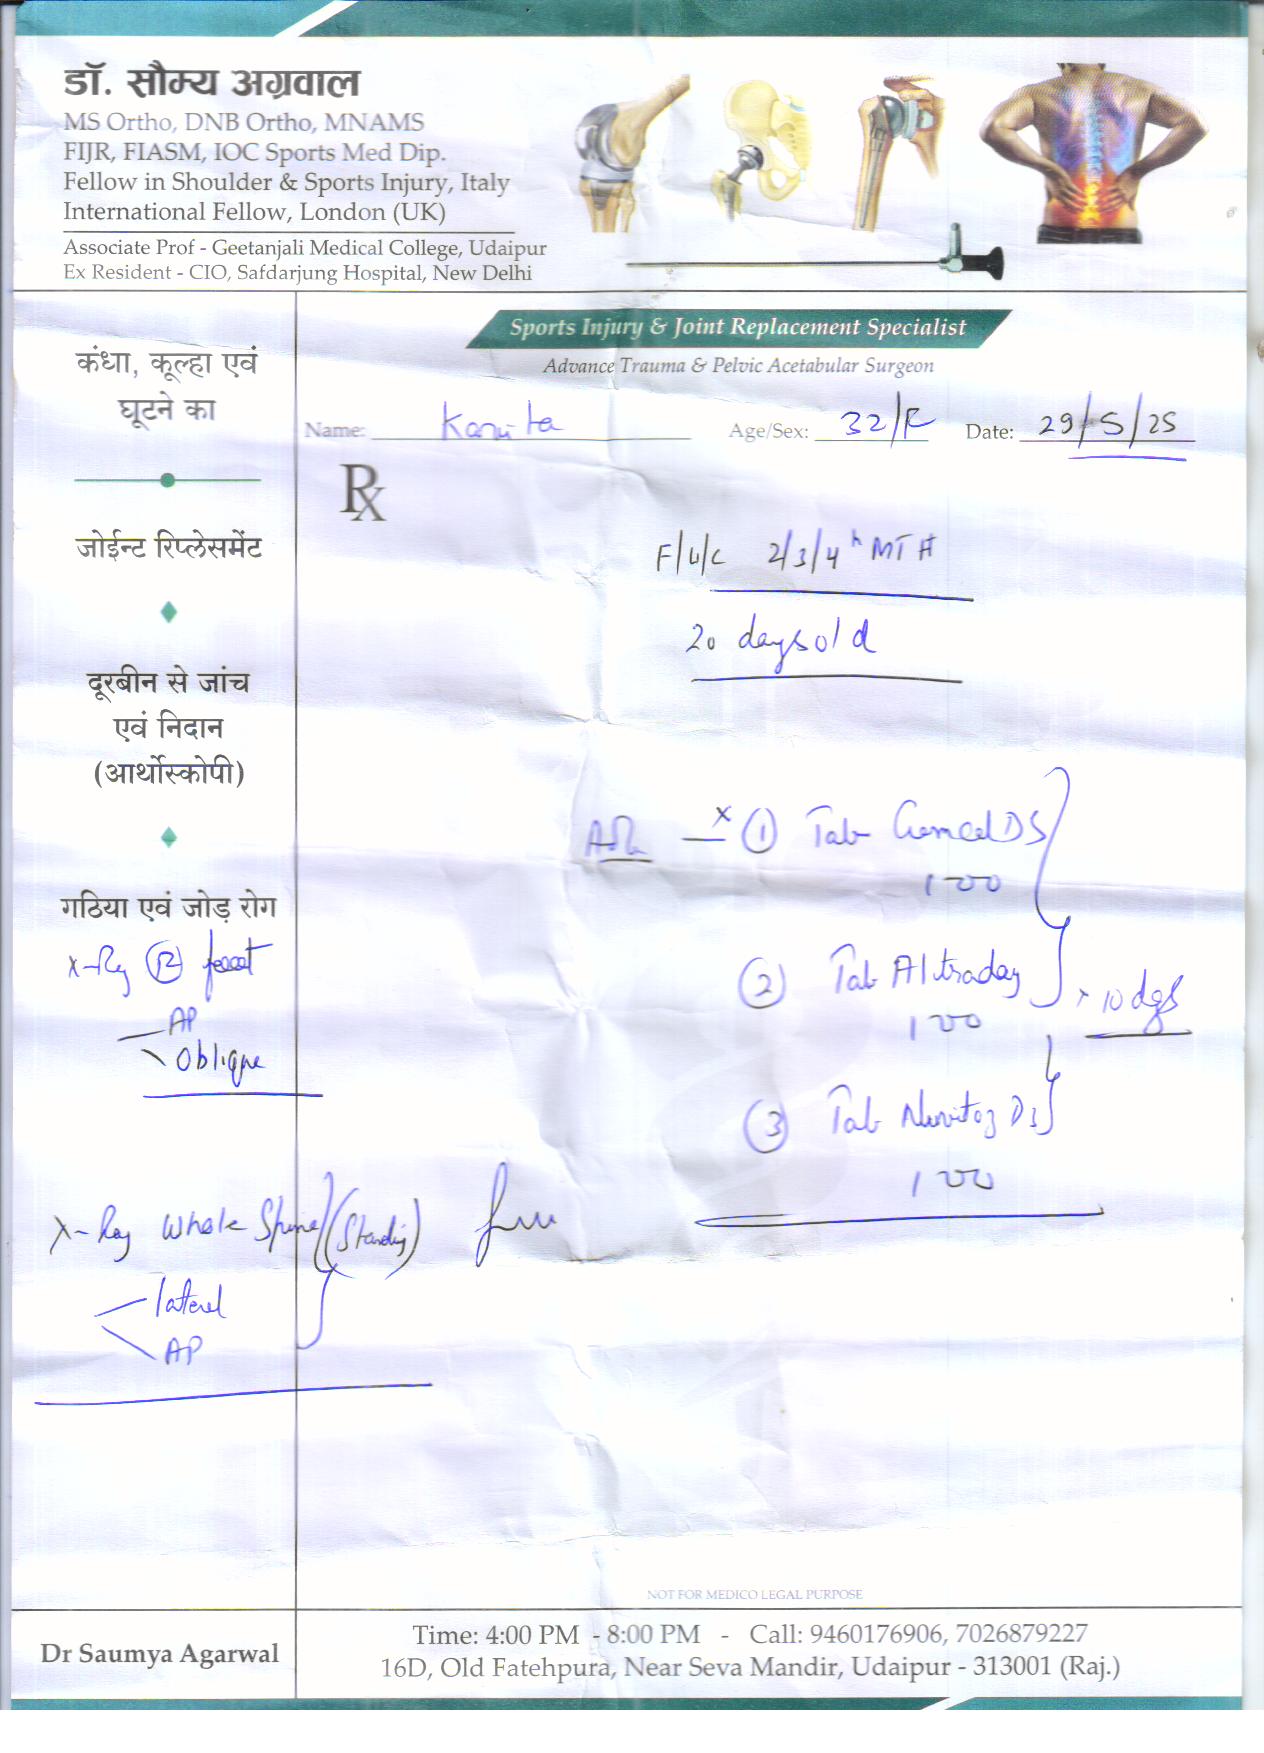 डॉ. सौम्य अग्रवाल
MS Ortho, DNB Ortho, MNAMS
FIJR, FIASM, IOC Sports Med Dip.
Fellow in Shoulder & Sports Injury, Italy
International Fellow, London (UK)
Associate Prof - Geetanjali Medical College, Udaipur
Ex Resident - CIO, Safdarjung Hospital, New Delhi
Sports Injury & Joint Replacement Specialist
Advance Trauma & Pelvic Acetabular Surgeon
Name: Age/Sex: 32/F Date: 29/5/25
Rx
कंधा, कूल्हा एवं
घूटने का
जोईन्ट रिप्लेसमेंट
दूरबीन से जांच
एवं निदान
(आर्थोस्कोपी)
गठिया एवं जोड़ रोग
X-Ray R foot
AP
Oblique
X-Ray Whole Spine (Standing)
lateral
AP
F/U/C 2/3/4th MT #
20 days old
1 Tab DS
100
2 Tab Altraday
100
x 10 days
3 Tab
100
NOT FOR MEDICO LEGAL PURPOSE
Dr Saumya Agarwal
Time: 4:00 PM - 8:00 PM - Call: 9460176906, 7026879227
16D, Old Fatehpura, Near Seva Mandir, Udaipur - 313001 (Raj.)